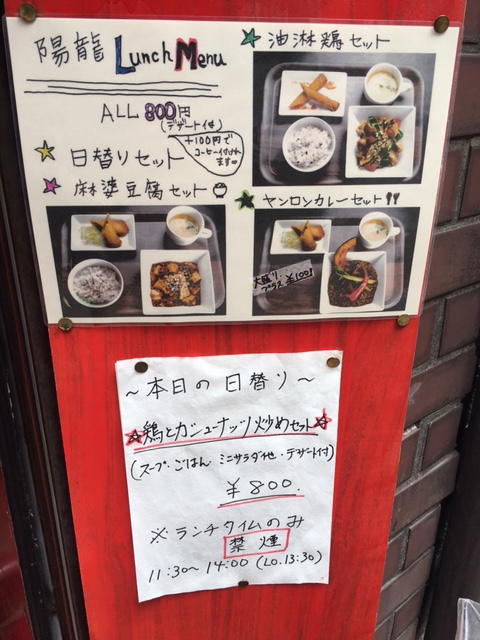 陽龍 Lunch Menu
ALL 800円
(デザート付)
+100円で
コーヒー付けれ
ます
日替りセット
麻婆豆腐セット
油淋鶏セット
ヤンロンカレーセット
大盛り
プラス ¥100!
～本日の日替り～
☆鶏とカシューナッツ炒めセット☆
(スープ・ごはん ミニサラダ他・デザート付)
¥800.
※ランチタイムのみ
禁煙
11:30～14:00 (LO.13:30)